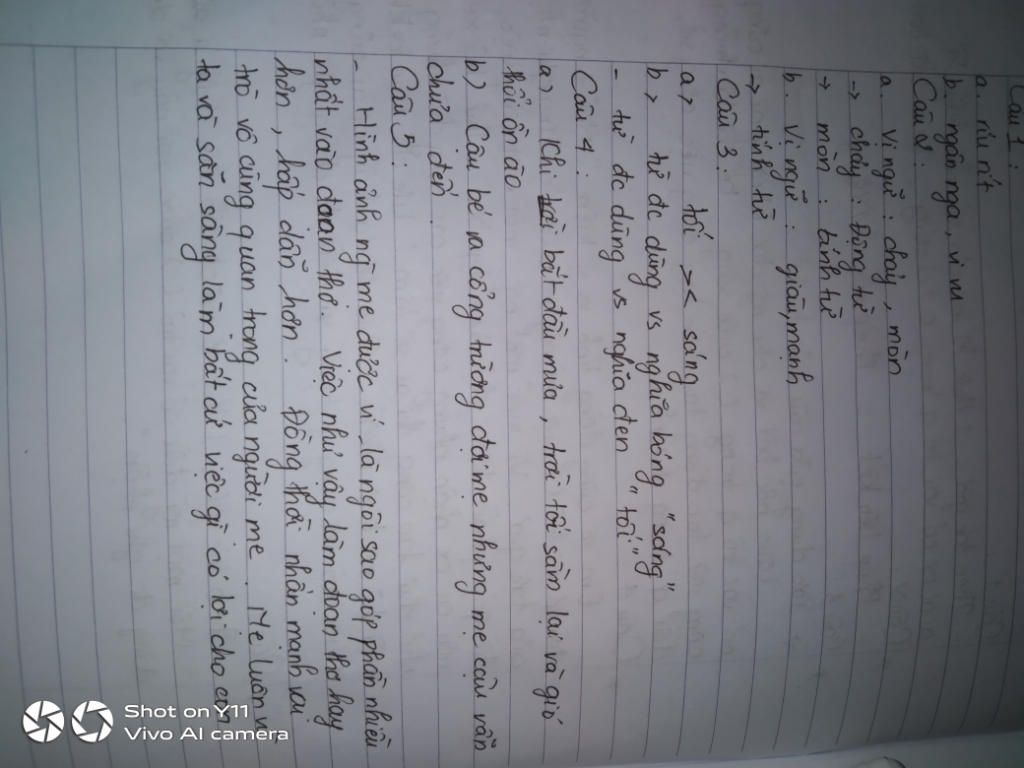 Câu 1:
a. ríu rít
b. ngân nga, vi vu
Câu 2:
a. Vị ngữ: chảy, mòn
→ chảy: Động từ
→ mòn: tính từ
b. Vị ngữ: giàu, mạnh
→ tính từ
Câu 3:
a, tối >< sáng
b, từ đc dùng vs nghĩa bóng "sáng"
- từ đc dùng vs nghĩa đen "tối"
Câu 4:
a) Khi bắt đầu mưa, trời tối sầm lại và gió
thổi ồn ào
b) Cậu bé ra cổng trường đợi mẹ nhưng mẹ cậu vẫn
chưa đến.
Câu 5:
- Hình ảnh ng` mẹ được ví là ngôi sao góp phần nhiều
nhất vào đoạn thơ. Việc như vậy làm đoạn thơ hay
hơn, hấp dẫn hơn. Đồng thời nhấn mạnh vai
trò vô cùng quan trọng của người mẹ. Mẹ luôn
ta và sẵn sàng làm bất cứ việc gì có lợi cho con
Shot on Y11
Vivo AI camera